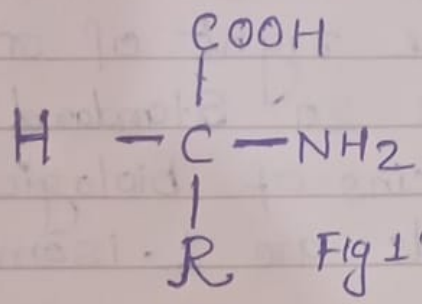 COOH
H - C - NH2
R Fig 1